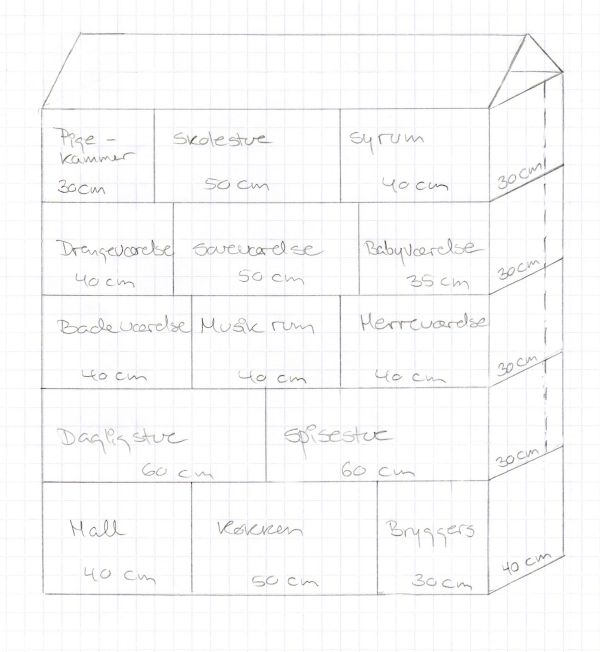 Pige-
kammer
30cm
Skolestue
50 cm
Syrum
40cm
30cm
Drengeværelse
40 cm
Soveværelse
50 cm
Babyværelse
35 cm
30cm
Badeværelse
40 cm
Musik rum
40 cm
Herreværelse
40 cm
30cm
Dagligstue
60 cm
Spisestue
60 cm
30cm
Hall
40 cm
Køkken
50 cm
Bryggers
30 cm
40 cm